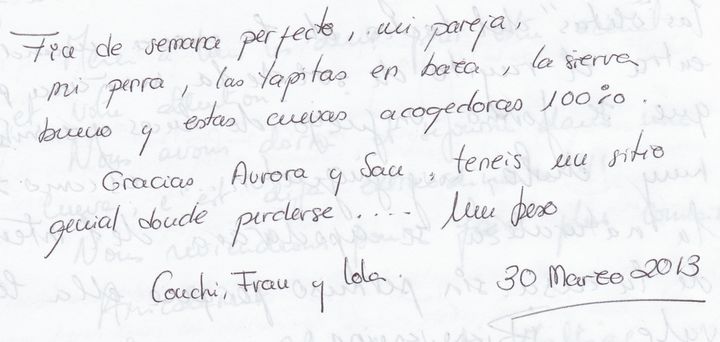 Fin de semana perfecto, mi pareja,
mi perra, las tapitas en baza, la sierra
bueno y estas cuevas acogedoras 100%.
Gracias Aurora y San, teneis un sitio
genial donde perderse .... Un beso
Conchi, Fran y Lola.
30 Marzo 2013